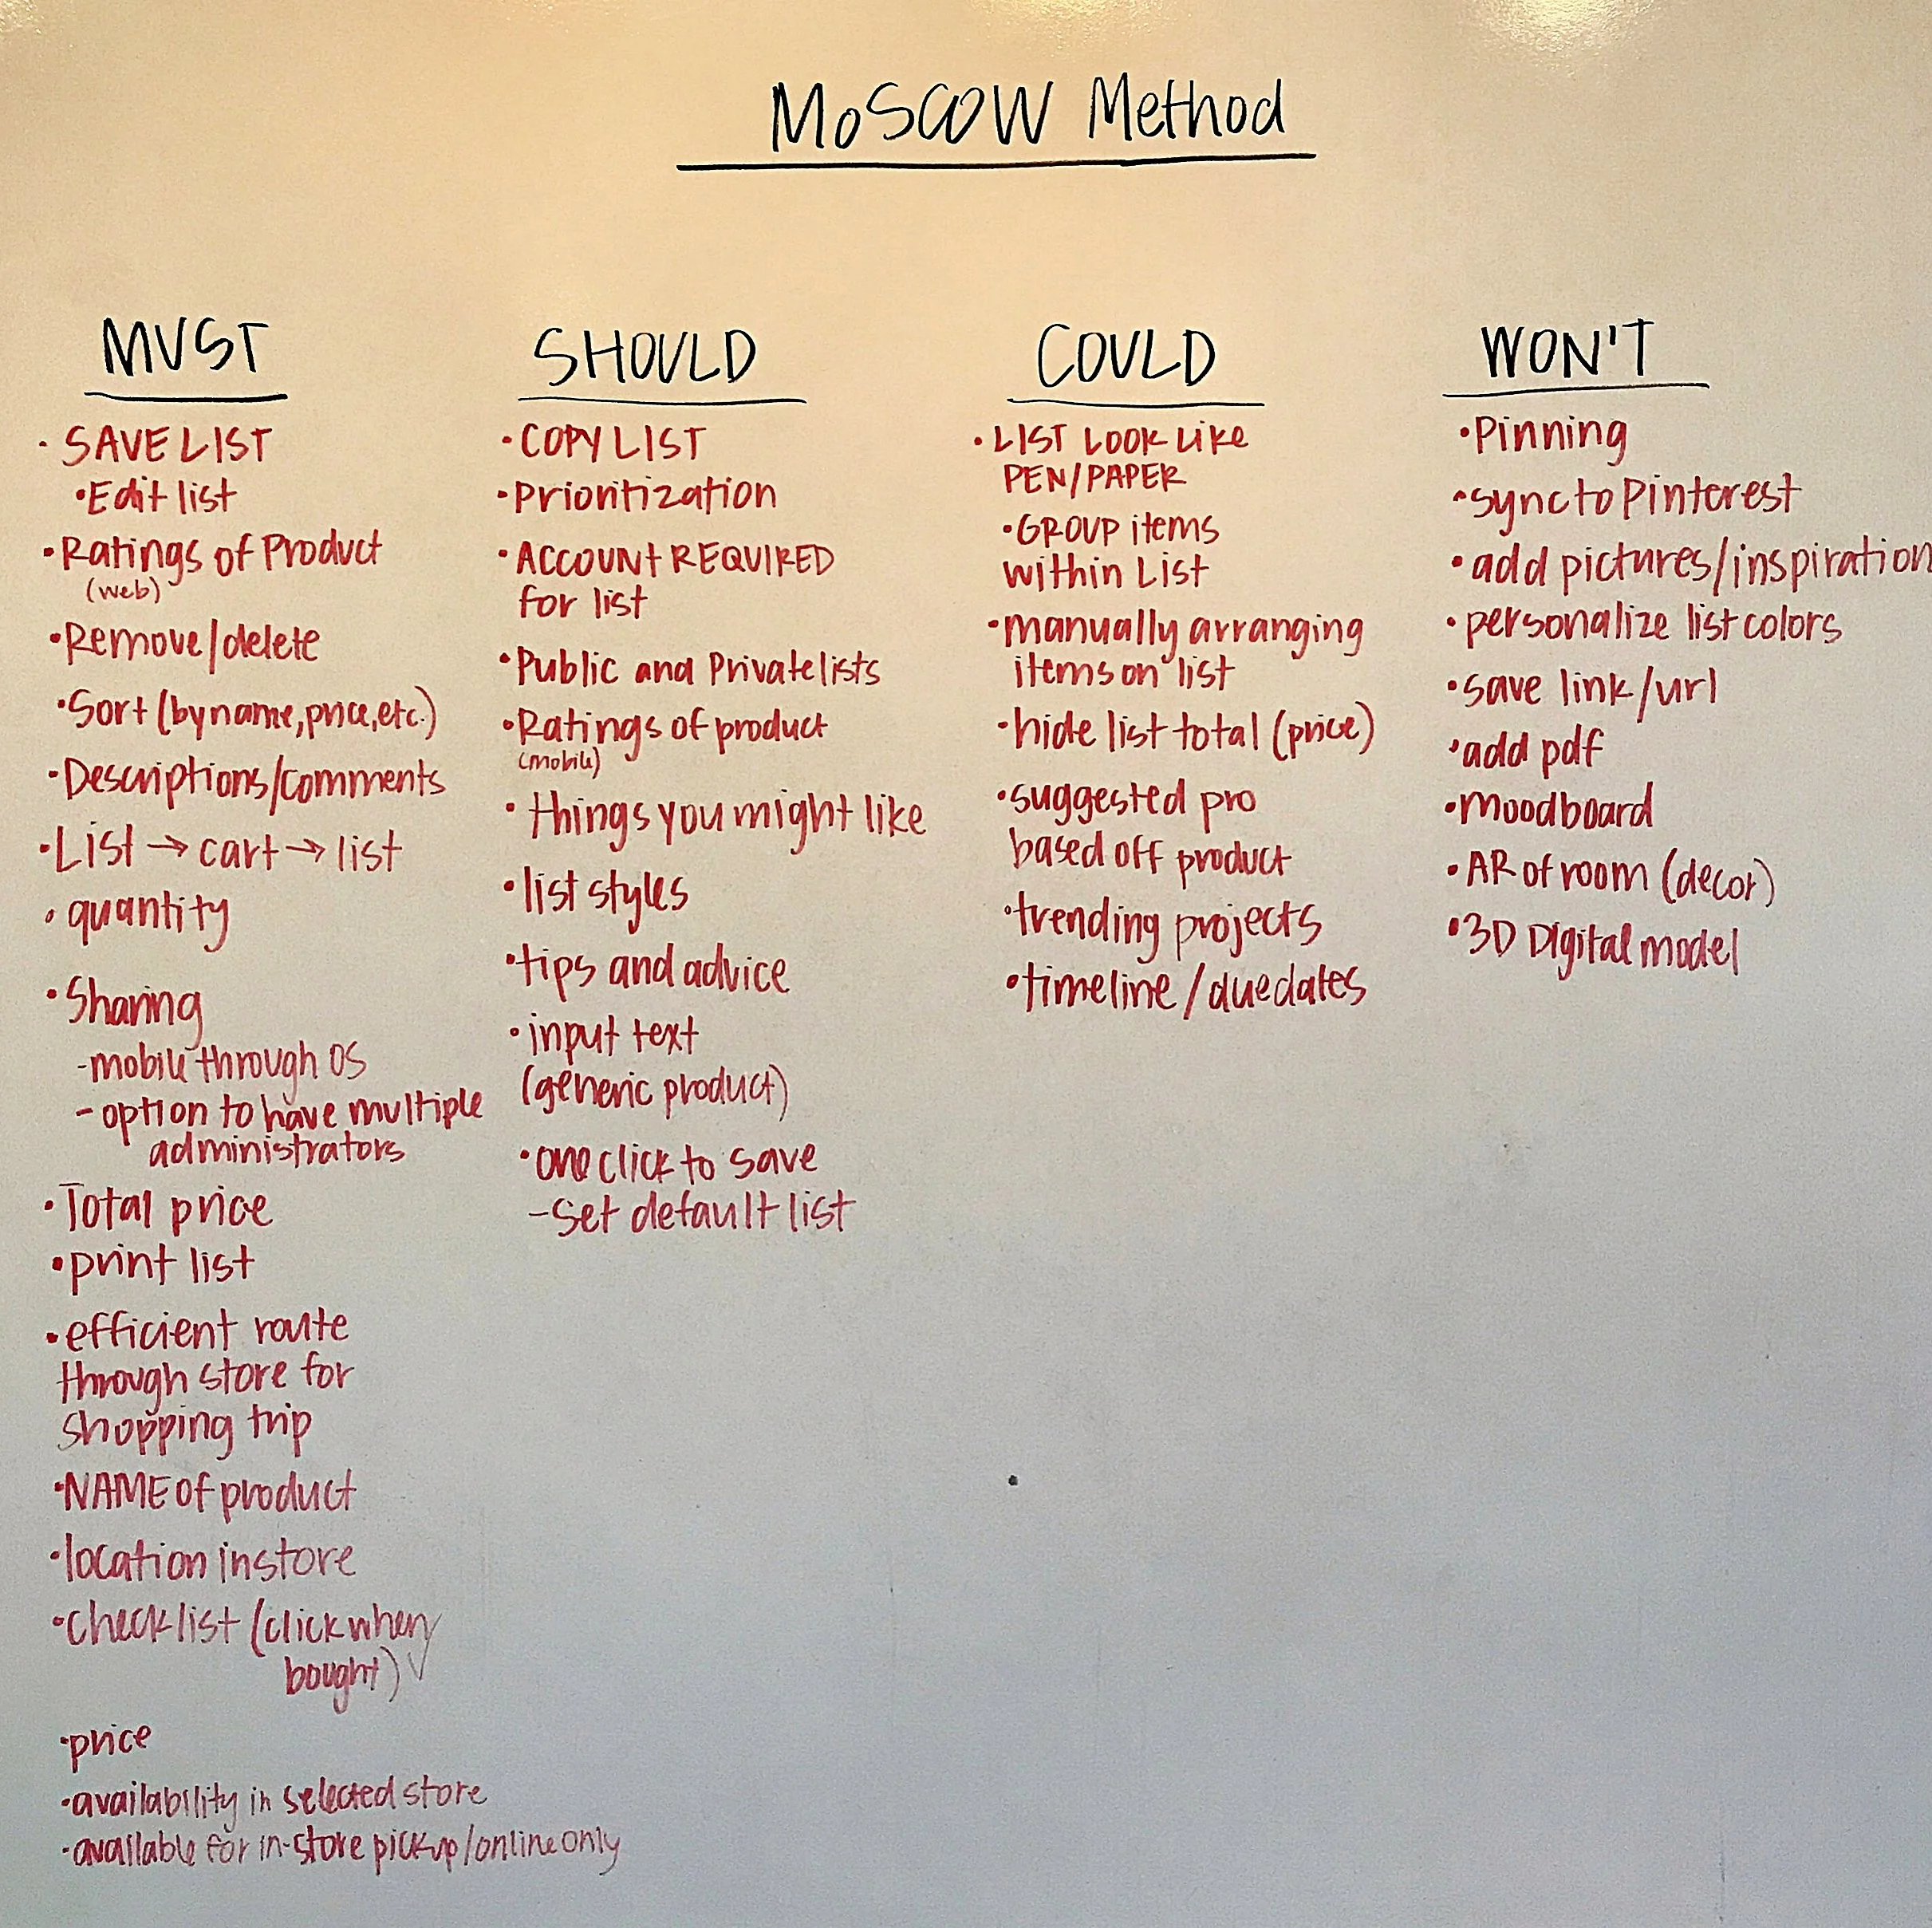 MoSCOW Method
MUST
· SAVE LIST
· Edit list
· Ratings of Product
(web)
· Remove/delete
· Sort (by name, price, etc.)
· Descriptions/comments
· List → cart → list
· quantity
· Sharing
- mobile through OS
- option to have multiple
administrators
· Total price
· print list
· efficient route
through store for
shopping trip
· NAME of product
· location in store
· checklist (click when
bought) ✓
· price
· availability in selected store
· available for in-store pickup/online only
SHOULD
· COPY LIST
· Prioritization
· ACCOUNT REQUIRED
for list
· Public and Private lists
· Ratings of product
(mobile)
· things you might like
· list styles
· tips and advice
· input text
(generic product)
· one click to save
- set default list
COULD
· LIST LOOK LIKE
PEN/PAPER
· GROUP items
within List
· manually arranging
items on list
· hide list total (price)
· suggested pro
based off product
· trending projects
· timeline/due dates
WON'T
· Pinning
· sync to Pinterest
· add pictures/inspiration
· personalize list colors
· save link/url
· add pdf
· moodboard
· AR of room (decor)
· 3D Digital model